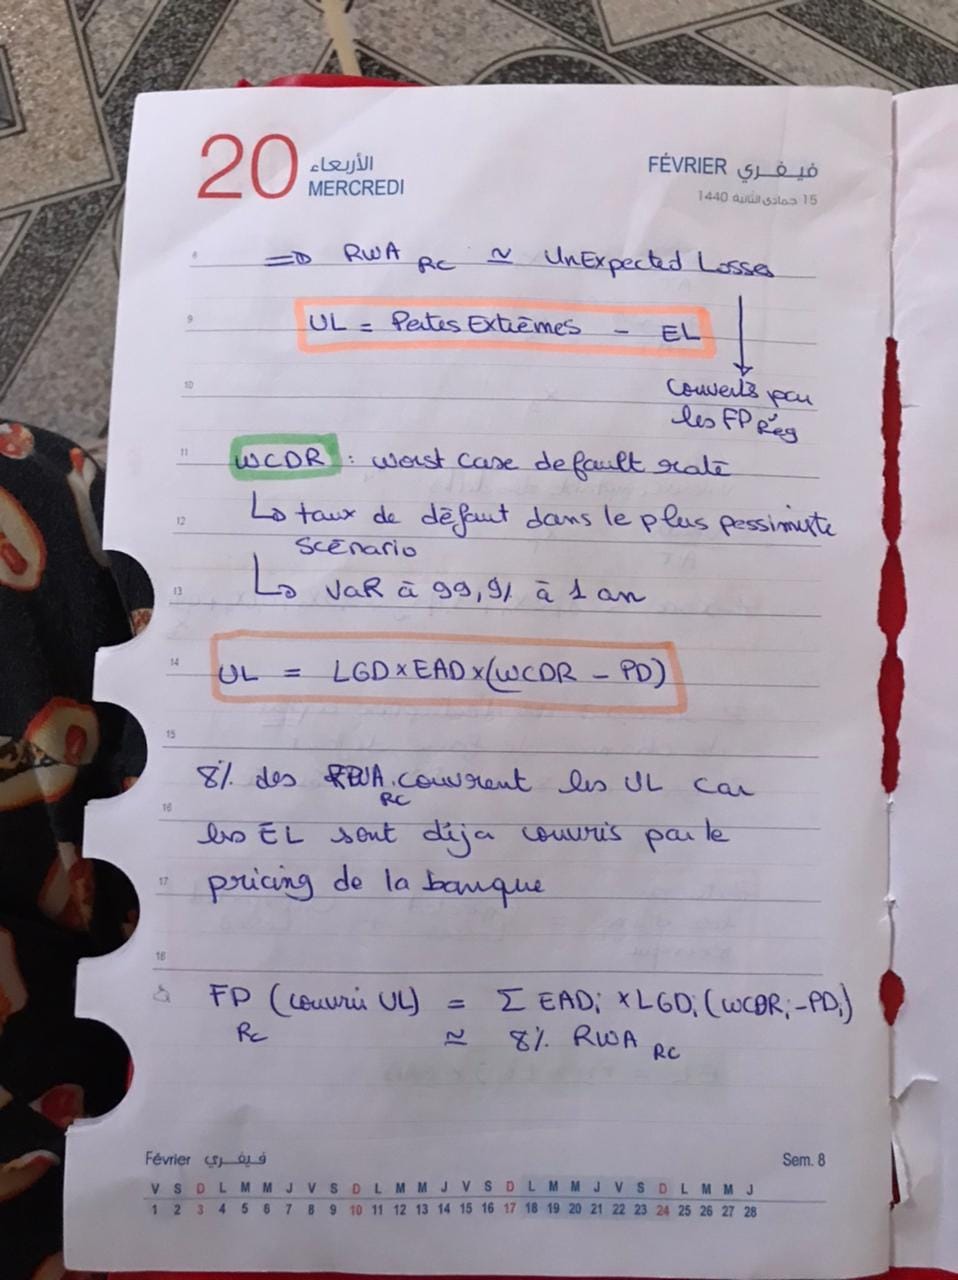 20 الأربعاء MERCREDI
FÉVRIER فيفري
15 جمادى الثانية 1440
8
=> RWA RC ≃ UnExpected Losses
9
UL = Pertes Extrêmes - EL
10
Couverts par
les FP Rég
11
WCDR : worst case default rate
12
↳ taux de défaut dans le plus pessimiste
scénario
13
↳ VaR à 99,9% à 1 an
14
UL = LGD x EAD x (WCDR - PD)
15
8% des RWA RC couvrent les UL car
16
les EL sont déja couvris par le
17
pricing de la banque
18
FP RC (couvrir UL) = Σ EADi x LGDi (WCDRi - PDi)
≃ 8% RWA RC
Février فيفري
Sem. 8
V S D L M M J V S D L M M J V S D L M M J V S D L M M J
1 2 3 4 5 6 7 8 9 10 11 12 13 14 15 16 17 18 19 20 21 22 23 24 25 26 27 28